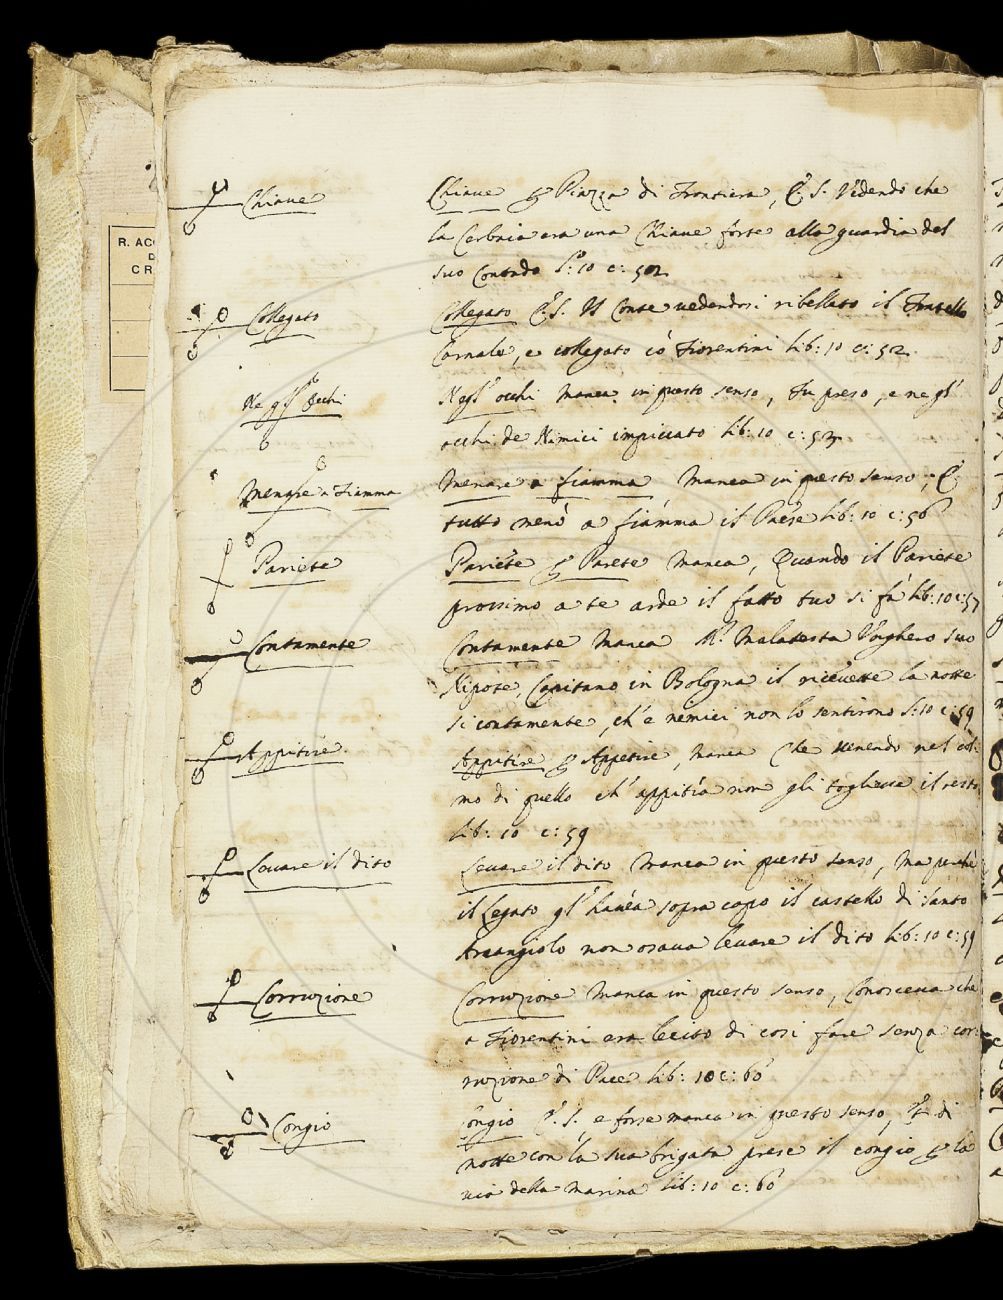 R. ACC
D
C R
Chiaue
Chiaue p Piazza di Frontiera, C. S. Vedendo che
la Cerbaia era una Chiaue forte alla guardia del
suo Contado L: 10 c: 502
Collegato
Collegato C. S. Il Conte uedendosi ribellato il Fratello
Carnale, e collegato có Fiorentini lib: 10 c: 52.
Negl' Occhi
Negl' occhi manca in questo senso, Fu preso, e negl'
occhi de Nimici impiccato lib: 10 c: 53
Menare a Fiamma
Menare a fiamma, manca in questo senso, E
tutto menò a fiamma il Paese lib: 10 c: 56
Pariete
Pariete p Parete manca, Quando il Pariete
prossimo a te arde il fatto tuo si fà lib: 10 c: 57
Contamente
Contamente manca M. Malatesta Vnghero suo
Nipote, Capitano in Bologna il riceuette la notte
si contamente, ch' e nemici non lo sentirono L: 10 c: 59
Appitire
Appitire p Appetire, manca Che uenendo nel col:
mo di quello ch' appitia non gli togliesse il resto
lib: 10 c: 59
Leuare il dito
Leuare il dito manca in questo senso, ma perchè
il Legato gl' hauea sopra capo il castello di Santo
Arcangiolo non osaua leuare il dito lib: 10 c: 59
Corruzione
Corruzione manca in questo senso, Conosceua che
a Fiorentini era lecito di cosi fare senza cor:
ruzione di Pace lib: 10 c: 60
Congio
Congio C. S. e forse manca in questo senso, Et di
notte con la sua brigata prese il congio p la
uia della marina lib: 10 c: 60